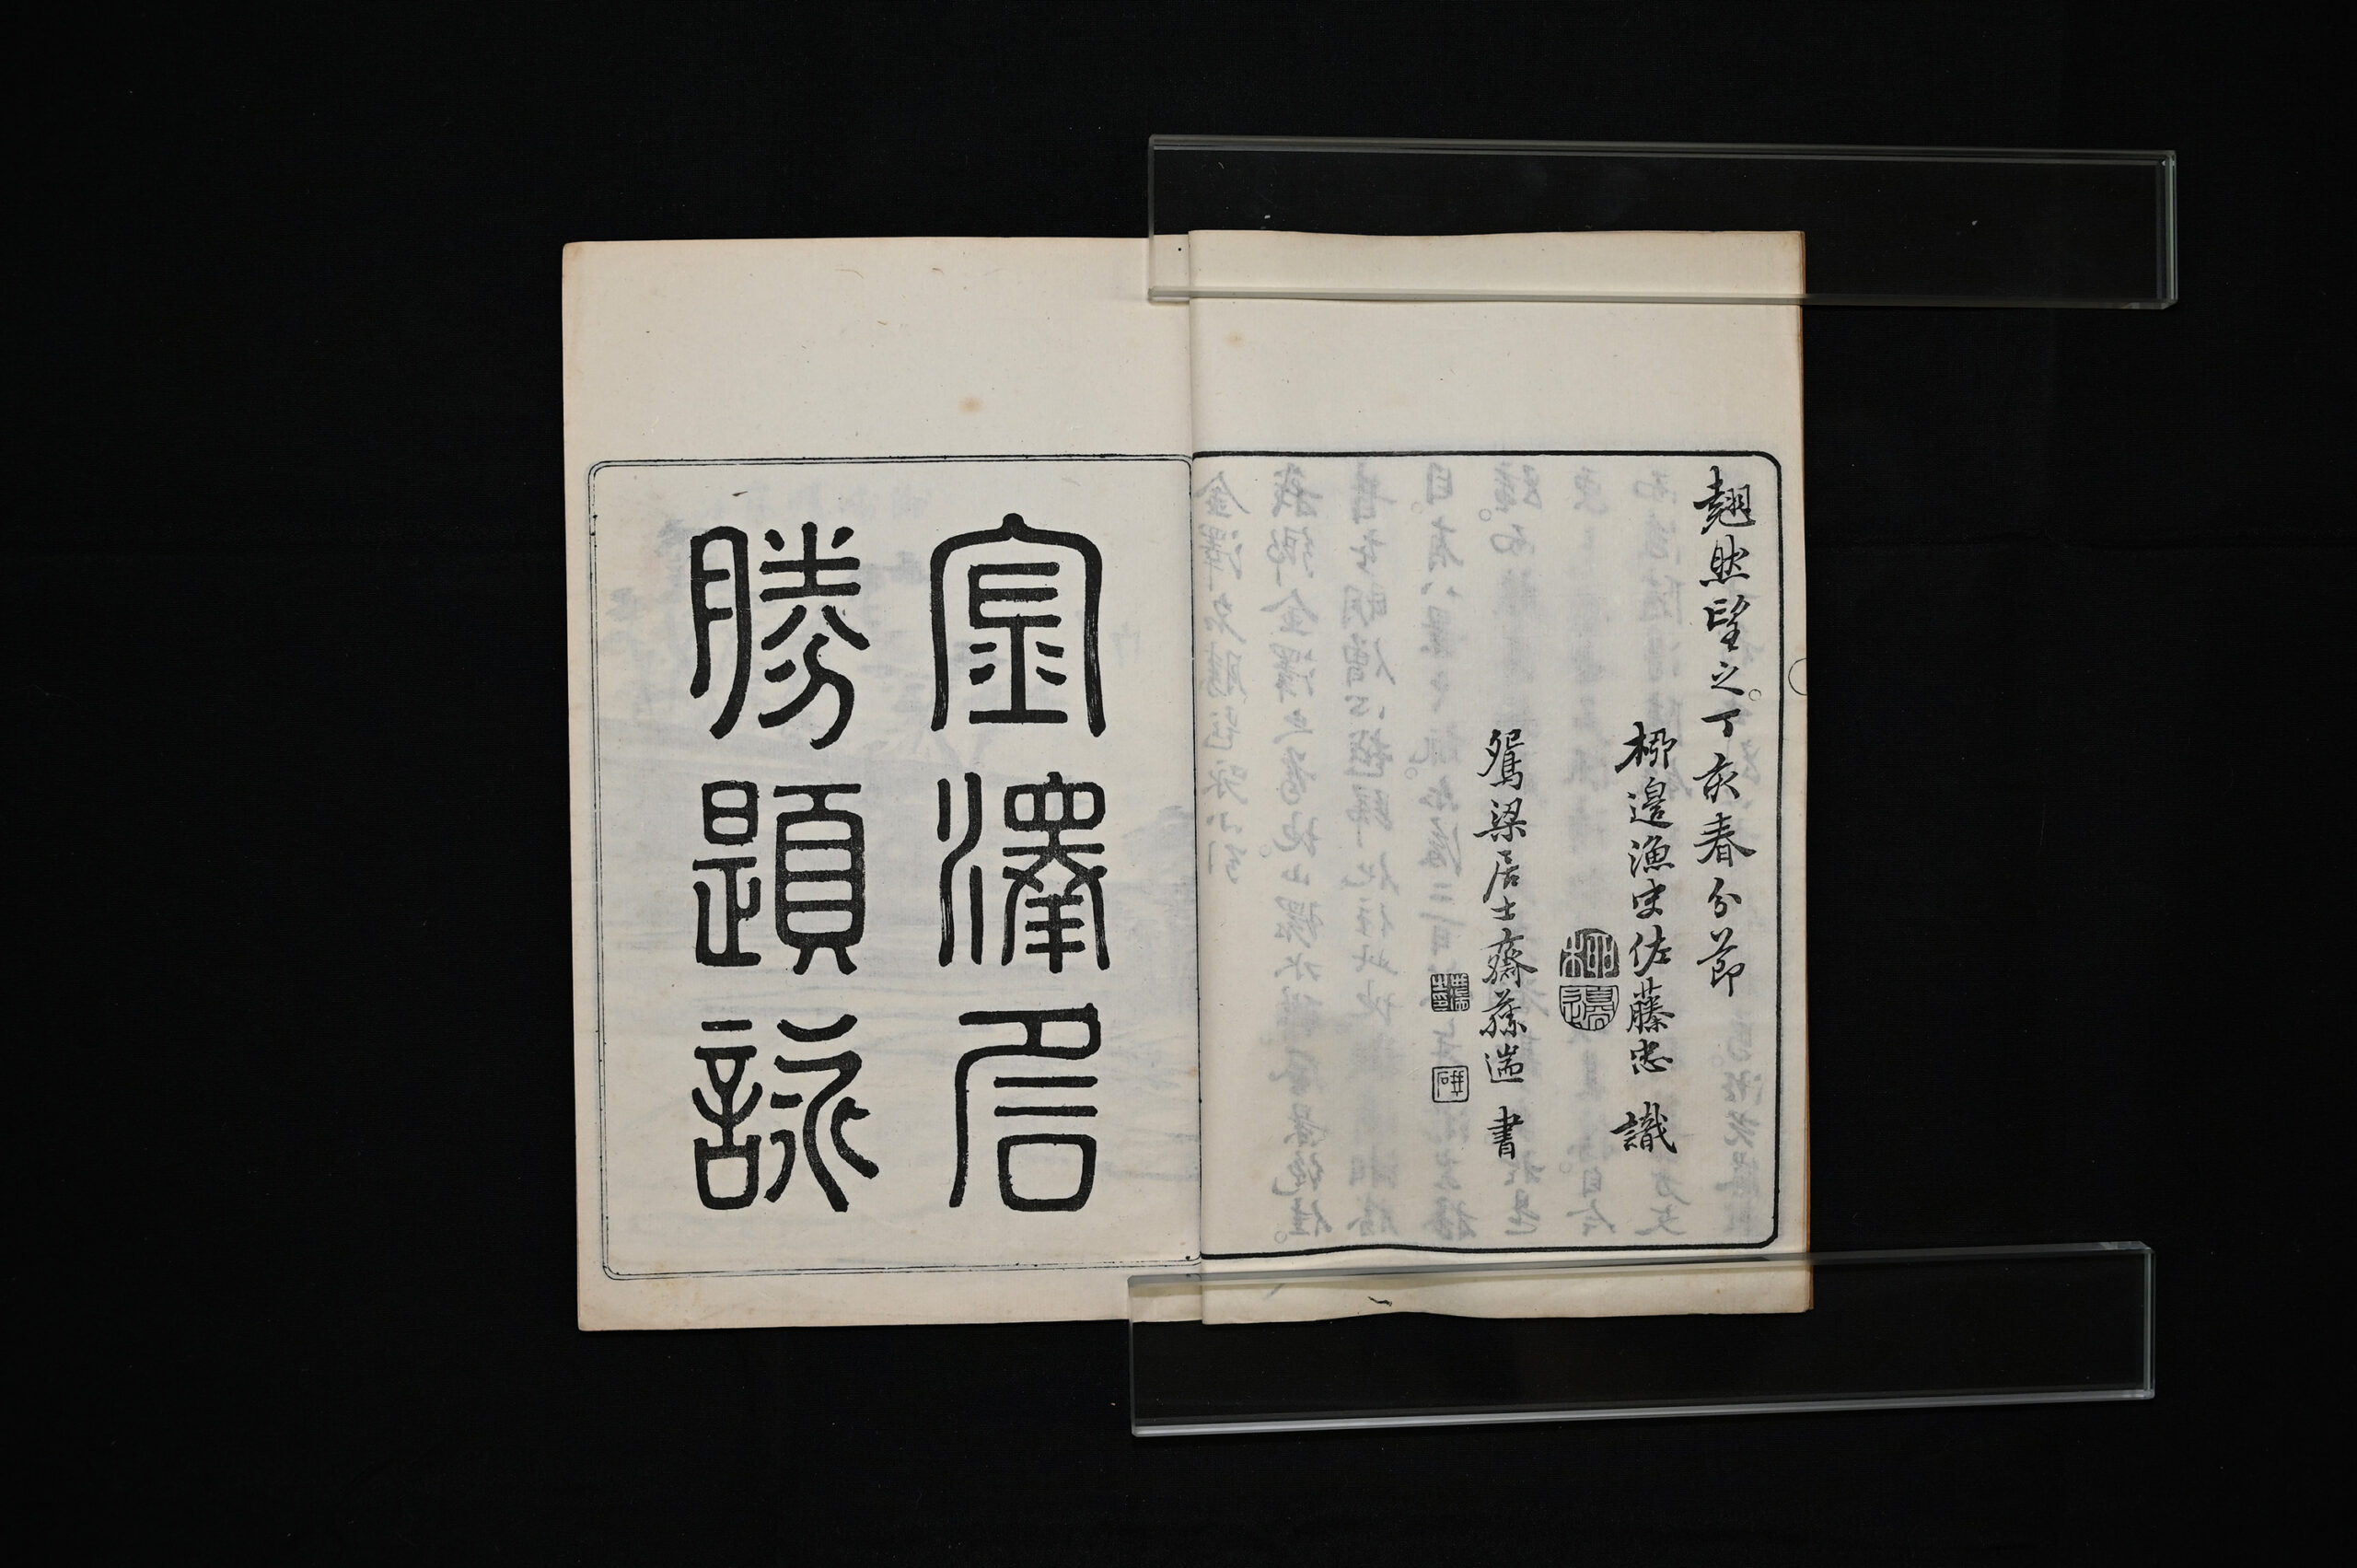 翹然望之。丁亥春分節
栁邊漁史佐藤忠識
栁邊
鴛梁居士齋藤遄書
金澤名
勝題詠